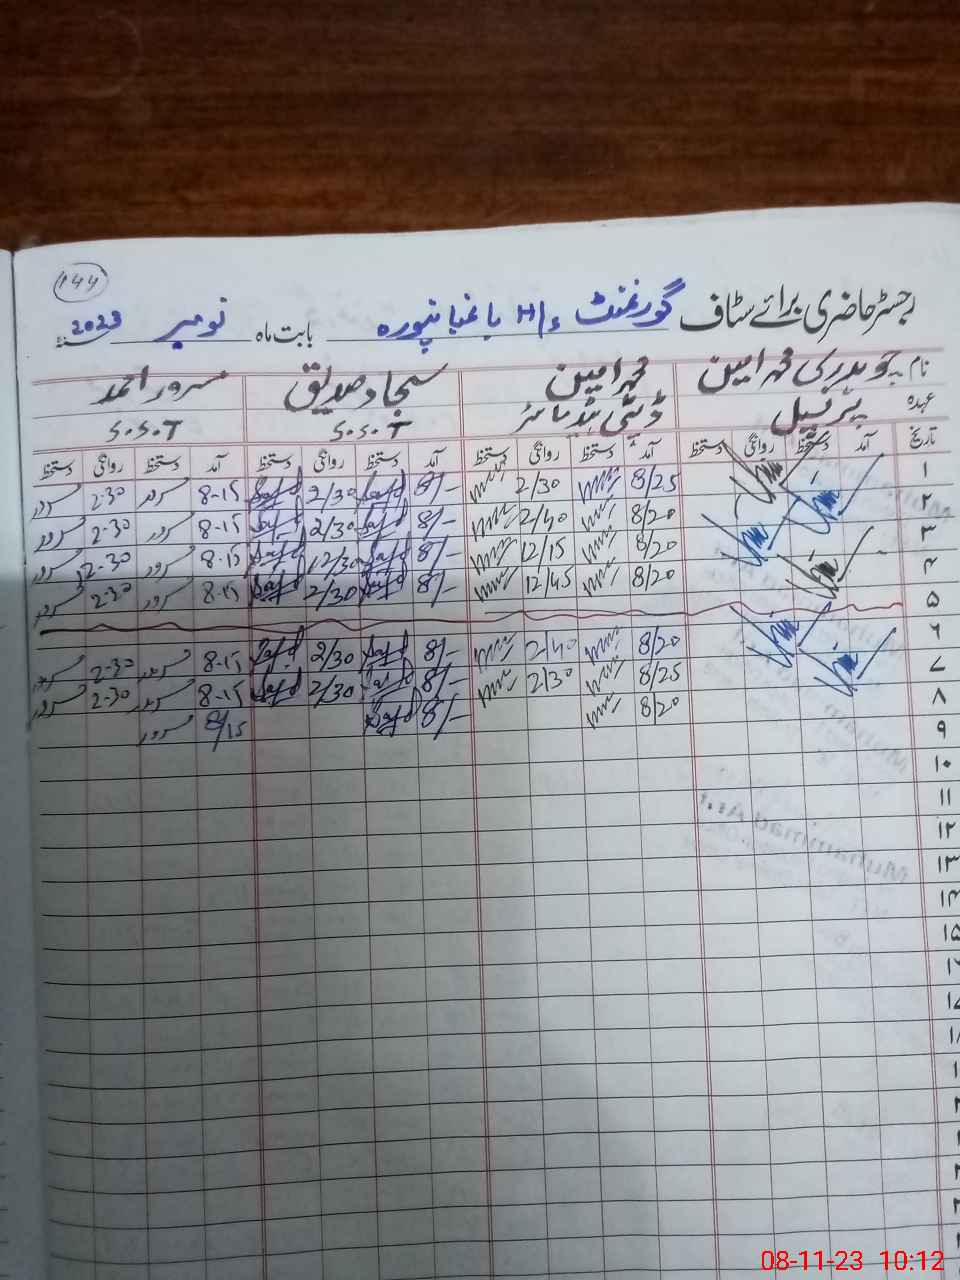 ۱۴۴
رجسٹر حاضری برائے سٹاف گورنمنٹ H/s باغبانپورہ بابت ماہ نومبر 2023
نام چوہدری محمد امین محمد امین سجاد صدیق سرور احمد
عہدہ پرنسپل ڈپٹی ہیڈ ماسٹر S.S.T S.S.T
تاریخ آمد دستخط روانگی دستخط آمد دستخط روانگی دستخط آمد دستخط روانگی دستخط آمد دستخط روانگی دستخط
۱ 8/25 2/30 8/- 2/30 8-15 سرور 2-30 سرور
۲ 8/20 2/40 8/- 2/30 8-15 سرور 2-30 سرور
۳ 8/20 12/15 8/- 12/30 8-15 سرور 12-30 سرور
۴ 8/20 12/45 8/- 2/30 8-15 سرور 2-30 سرور
۵
۶ 8/20 2/40 8/- 2/30 8-15 سرور 2-30 سرور
۷ 8/25 2/30 8/- 2/30 8-15 سرور 2-30 سرور
۸ 8/20 8/- 8/15 سرور
۹
۱۰
۱۱
۱۲
۱۳
۱۴
۱۵
08-11-23 10:12